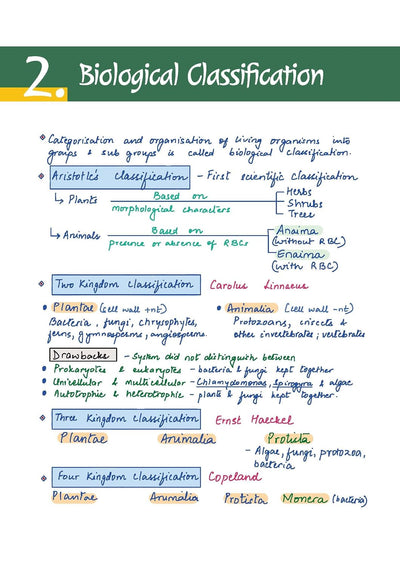 2. Biological Classification
Categorisation and organisation of living organisms into
groups & sub groups is called biological classification.
Aristotle's classification - First scientific classification
↳ Plants Based on morphological characters Herbs
Shrubs
Trees
↳ Animals Based on presence or absence of RBCs Anaima
(without RBC)
Enaima
(with RBC)
Two Kingdom classification Carolus Linnaeus
Plantae (cell wall +nt)
Bacteria, fungi, chrysophytes,
ferns, gymnosperms, angiosperms.
Animalia (cell wall -nt)
Protozoans, insects &
other invertebrates; vertebrates
Drawbacks - System did not distinguish between
Prokaryotes & eukaryotes - bacteria & fungi kept together
Unicellular & multicellular - Chlamydomonas, Spirogyra & algae
Autotrophic & heterotrophic - plants & fungi kept together.
Three Kingdom Classification Ernst Haeckel
Plantae Animalia Protista
- Algae, fungi, protozoa,
bacteria
Four Kingdom Classification Copeland
Plantae Animalia Protista Monera (bacteria)